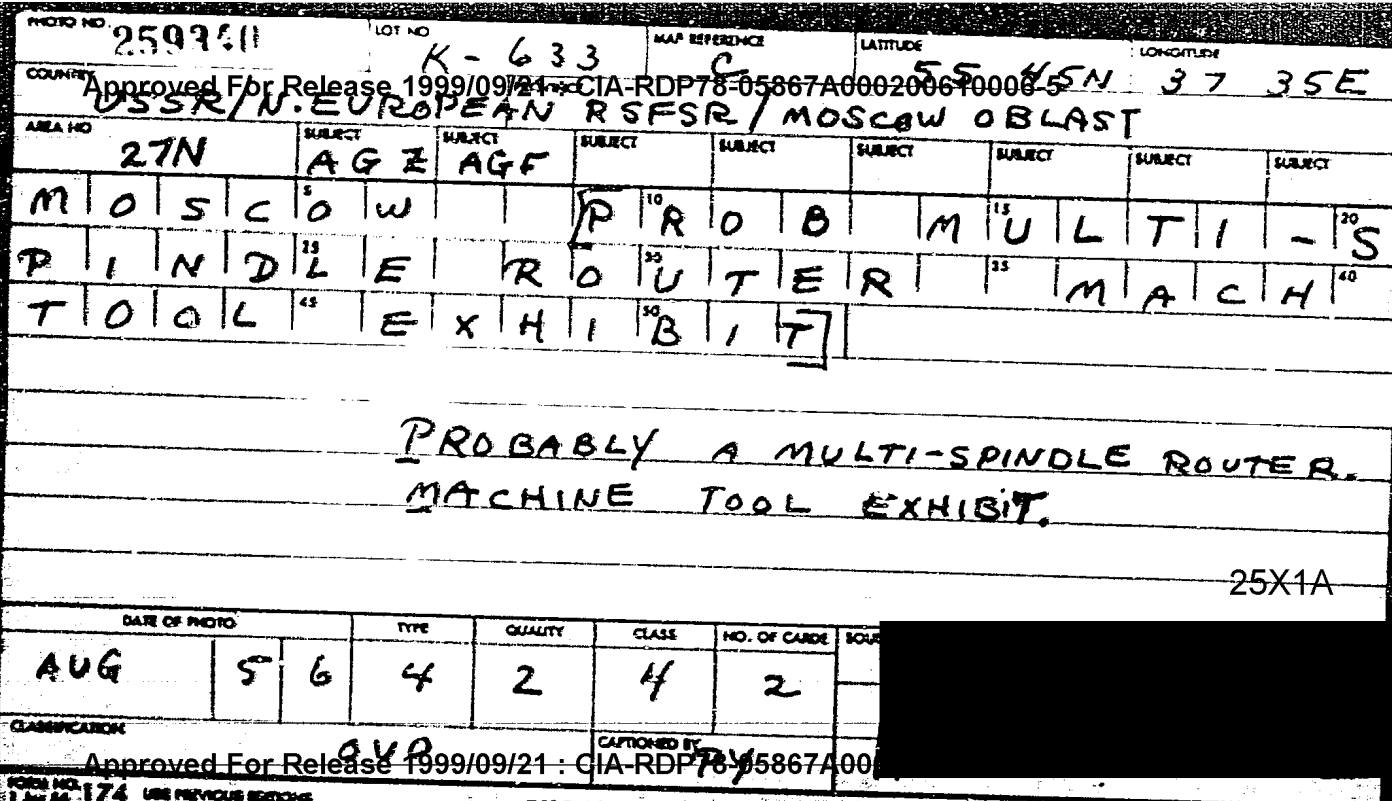 PHOTO NO. 259340 LOT NO K - 633 MAP REFERENCE C LATITUDE 55 45N LONGITUDE 37 35E
COUNTRY Approved For Release 1999/09/21 : CIA-RDP78-05867A000200610006-5
USSR/N.EUROPEAN RSFSR/MOSCOW OBLAST
AREA NO 27N SUBJECT AGZ SUBJECT AGF SUBJECT SUBJECT SUBJECT SUBJECT SUBJECT SUBJECT
MOSCOW [PROB MULTI-S
PINDLE ROUTER MACH
TOOL EXHIBIT]
PROBABLY A MULTI-SPINDLE ROUTER.
MACHINE TOOL EXHIBIT.
25X1A
DATE OF PHOTO TYPE QUALITY CLASS NO. OF CARDS
AUG 56 4 2 4 2
CLASSIFICATION CAPTIONED BY
Approved For Release 1999/09/21 : CIA-RDP78-05867A00
FORM NO. 174 USE PREVIOUS EDITIONS